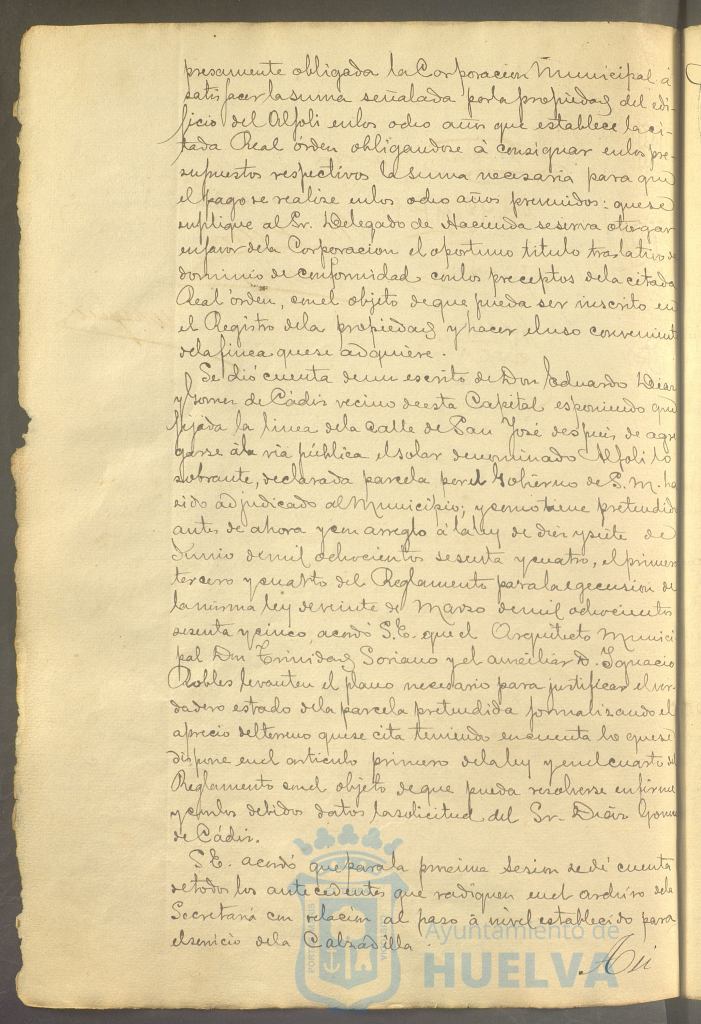 presamente obligada la Corporacion Municipal á
satisfacer la suma señalada por la propiedad del edi-
ficio del Alfoli en los ocho años que establece la ci-
tada Real órden obligandose á consignar en los pre-
supuestos respectivos la suma necesaria para que
el pago se realize en los ocho años premidos: que se
suplique al Sr. Delegado de Hacienda se sirva otorgar
en favor de la Corporacion el oportuno titulo traslativo de
dominio de conformidad con los preceptos de la citada
Real órden, con el objeto de que pueda ser inscrito en
el Registro de la propiedad y hacer el uso conveniente
de la finca que se adquiere.
Se dió cuenta de un escrito de Don Eduardo Diaz
y Gomez de Cádiz vecino de esta Capital esponiendo que
fijada la linea de la calle de San José despues de agre-
garse á la via pública el solar denominado Alfoli lo
sobrante, declarada parcela por el Gobierno de S. M. ha
sido adjudicado al Municipio; y como tiene pretendido
antes de ahora y con arreglo á la ley de diez y siete de
Junio de mil ochocientos sesenta y cuatro, el primero
tercero y cuarto del Reglamento para la egecusion de
la misma ley de veinte de Marzo de mil ochocientos
sesenta y cinco, acordó S. E. que el Arquitecto Munici-
pal Don Trinidad Soriano y el ausiliar D. Ignacio
Robles levanten el plano necesario para justificar el ver-
dadero estado de la parcela pretendida formalizando el
aprecio del terreno que se cita teniendo en cuenta lo que se
dispone en el articulo primero de la ley y en el cuarto del
Reglamento con el objeto de que pueda resolverse en firme
y con los debidos datos la solicitud del Sr. Diaz Gomez
de Cádiz.
S E. acordó que para la procsima sesion se dé cuenta
de todos los antecedentes que radiquen en el archivo de la
Secretaria con relacion al paso á nivel establecido para
el servicio de la Calzadilla.
Ayuntamiento de
HUELVA